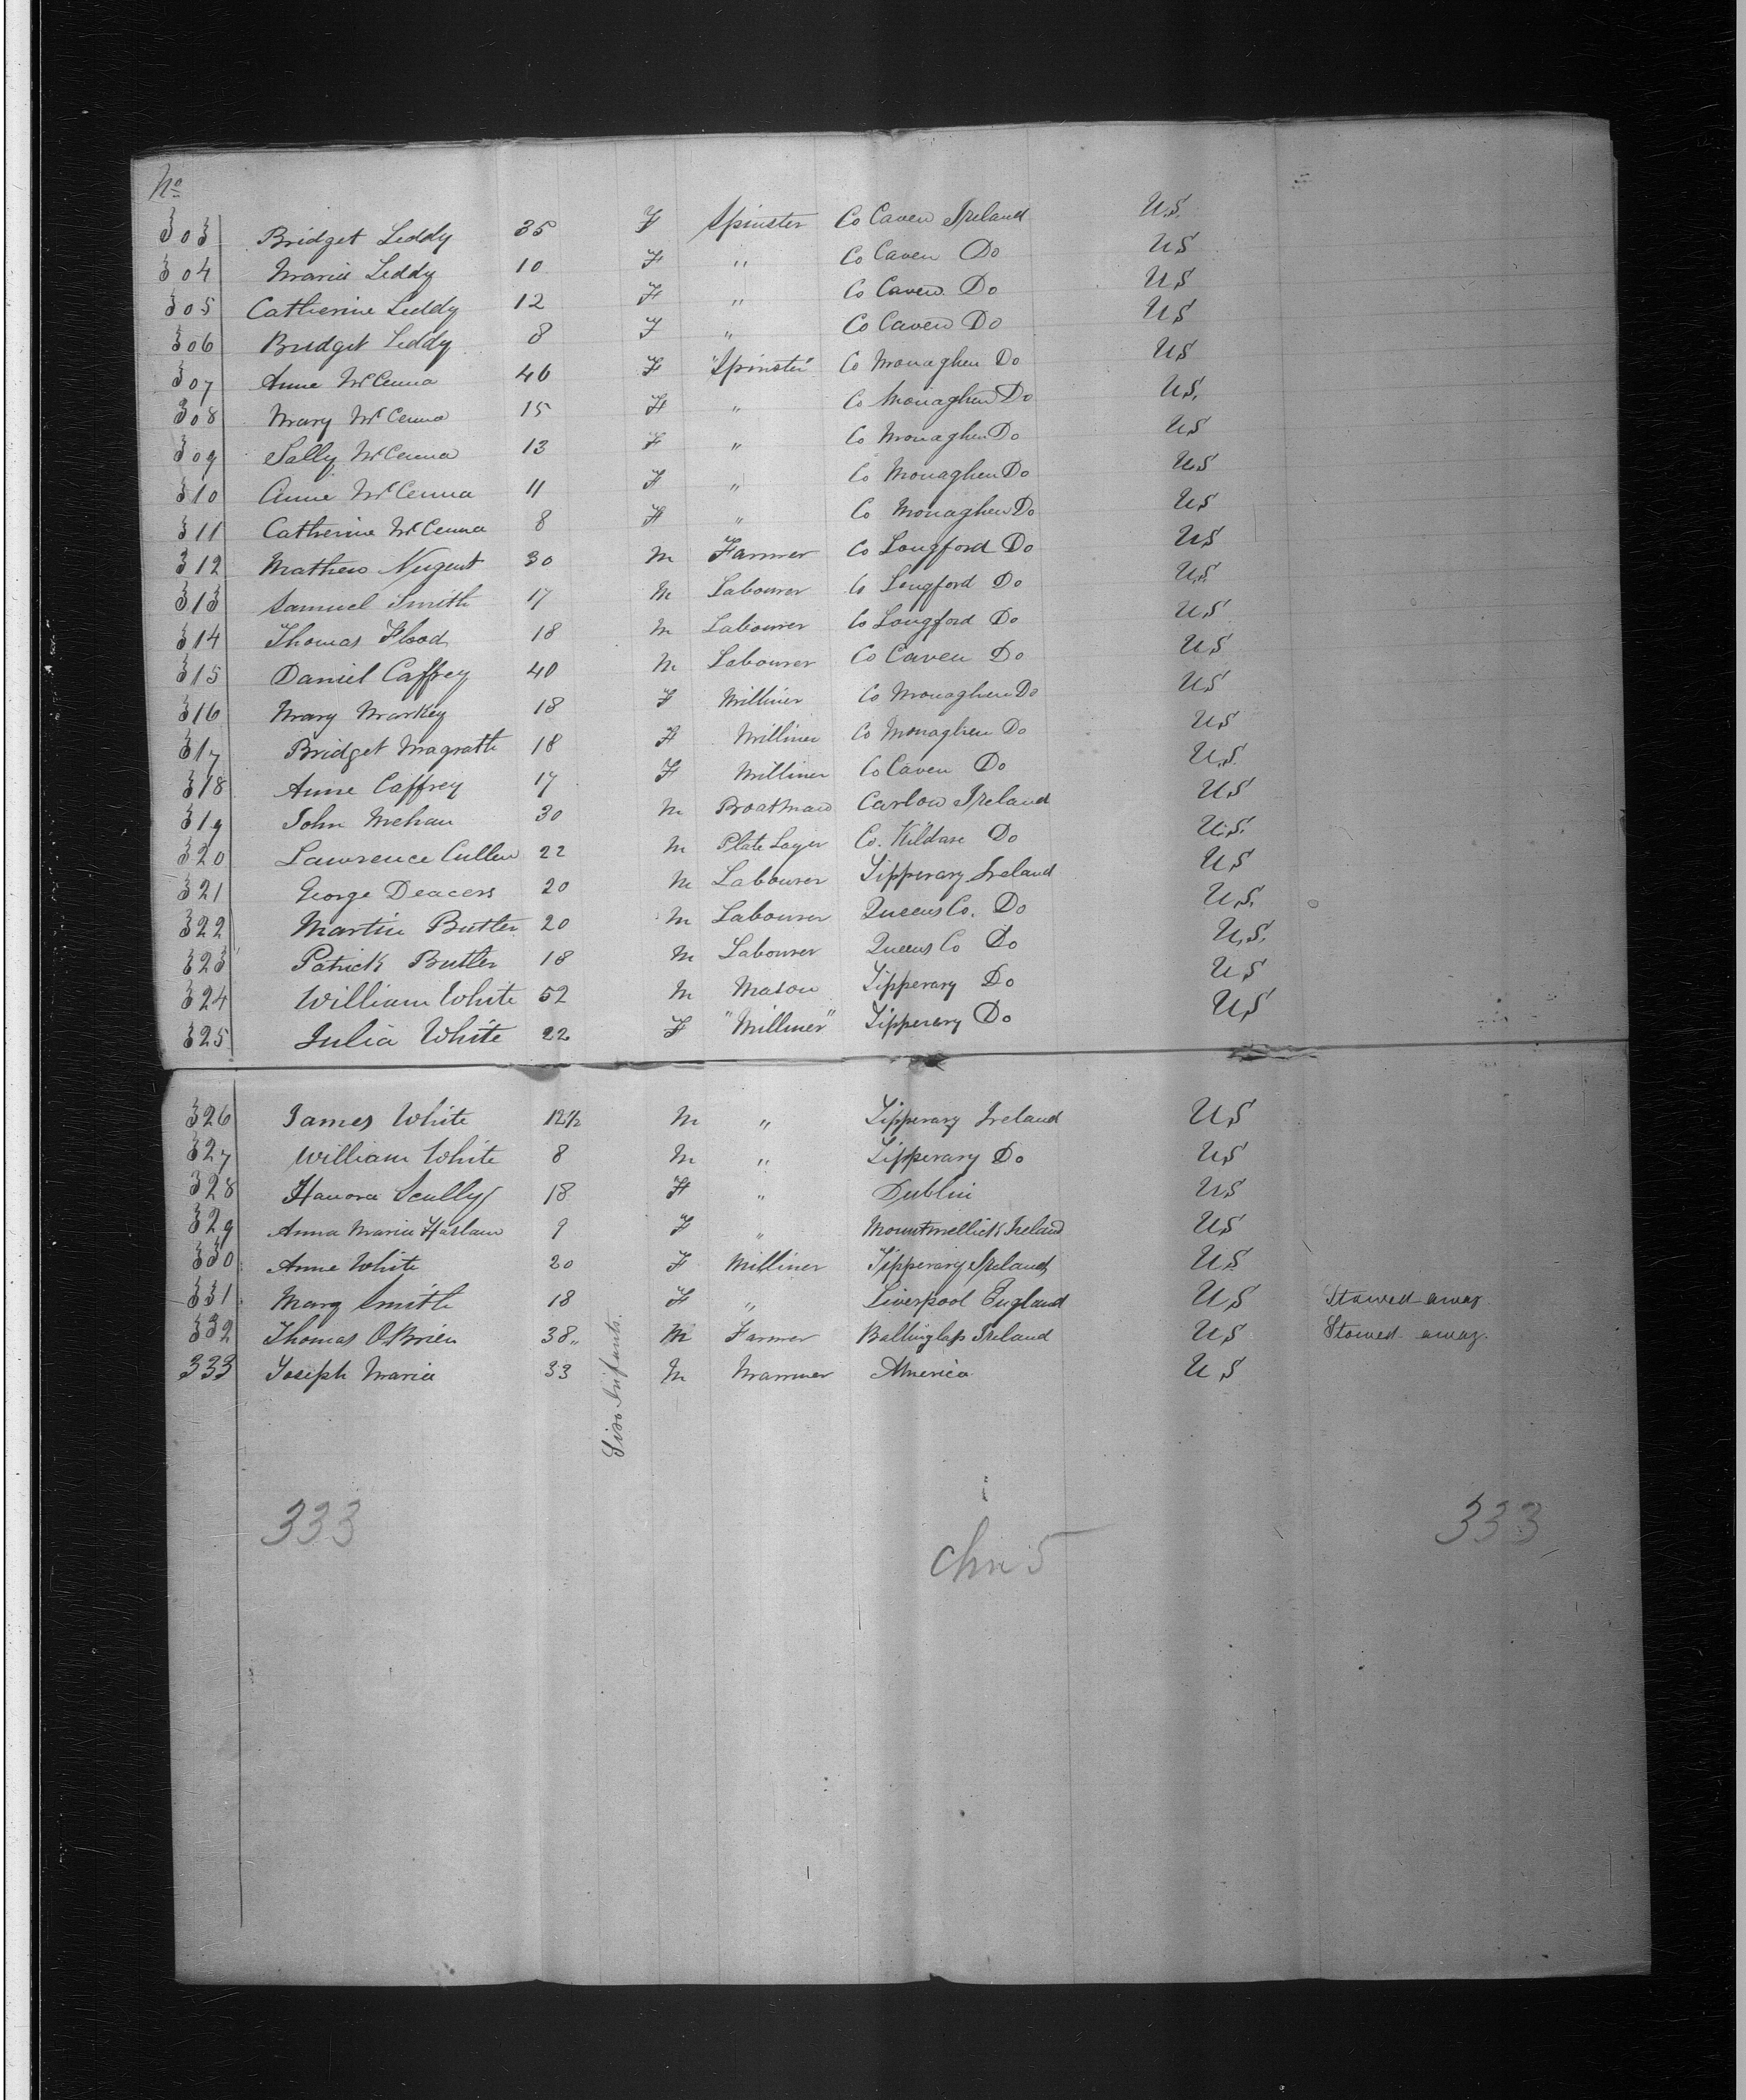 No
303 Bridget Leddy 35 F Spinster Co Caven Ireland U.S.
304 Maria Leddy 10 F " Co Caven Do US
305 Catherine Leddy 12 F " Co Caven Do US
306 Bridget Leddy 8 F " Co Caven Do US
307 Anne McCenna 46 F "Spinster" Co Monaghen Do US
308 Mary McCenna 15 F " Co Monaghen Do U.S.
309 Sally McCenna 13 F " Co Monaghen Do US
310 Anne McCenna 11 F " Co Monaghen Do US
311 Catherine McCenna 8 F " Co Monaghen Do US
312 Mathew Nugent 30 M Farmer Co Longford Do US
313 Samuel Smith 17 M Labourer Co Longford Do U.S.
314 Thomas Flood 18 M Labourer Co Longford Do US
315 Daniel Caffrey 40 M Labourer Co Caven Do US
316 Mary Markey 18 F Milliner Co Monaghen Do US
317 Bridget Magrath 18 F Milliner Co Monaghen Do US
318 Anne Caffrey 17 F Milliner Co Caven Do U.S.
319 John Mehan 30 M Boatman Carlow Ireland US
320 Lawrence Cullen 22 M Plate Layer Co. Kildare Do U.S.
321 George Deacers 20 M Labourer Tipperary Ireland US
322 Martin Butler 20 M Labourer Queens Co. Do U.S.
323 Patrick Butler 18 M Labourer Queens Co Do U.S.
324 William White 52 M Mason Tipperary Do US
325 Julia White 22 F "Milliner" Tipperary Do US
326 James White 12½ M " Tipperary Ireland US
327 William White 8 M " Tipperary Do US
328 Hanora Scully 18 F " Dublin US
329 Anna Maria Haslam 9 F " Mountmellick Ireland US
330 Anne White 20 F Milliner Tipperary Ireland US
331 Mary Smith 18 F " Liverpool England US Stowed away
332 Thomas O'Brien 38 " M Farmer Ireland US Stowed away.
333 Joseph Maria 33 M Mariner America US
Infants.
333 333
5